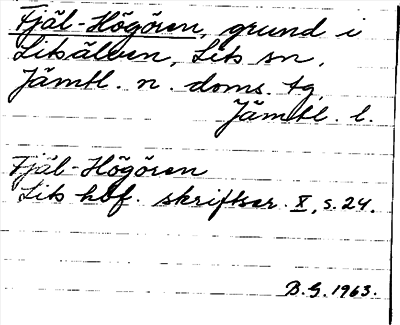 Fjäl-Högören, grund i
Litsälven, Lits sn,
Jämtl. n. doms. tg,
Jämtl. l.
Fjäl-Högören
Lits hbf. skriftser. X, s. 24.
B.G. 1963.